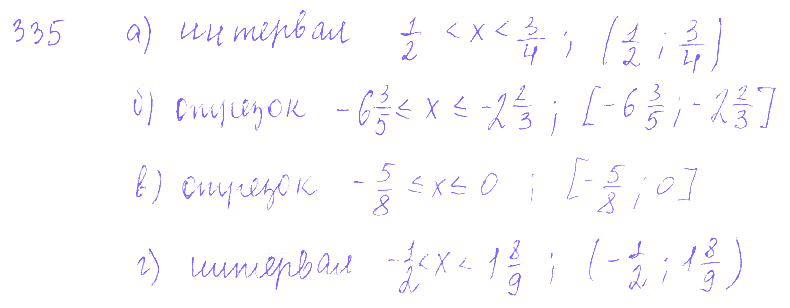 335 а) интервал 1/2 < x < 3/4 ; (1/2 ; 3/4)
б) отрезок -6 3/5 ≤ x ≤ -2 2/3 ; [-6 3/5 ; -2 2/3]
в) отрезок -5/8 ≤ x ≤ 0 ; [-5/8 ; 0]
г) интервал -1/2 < x < 1 8/9 ; (-1/2 ; 1 8/9)